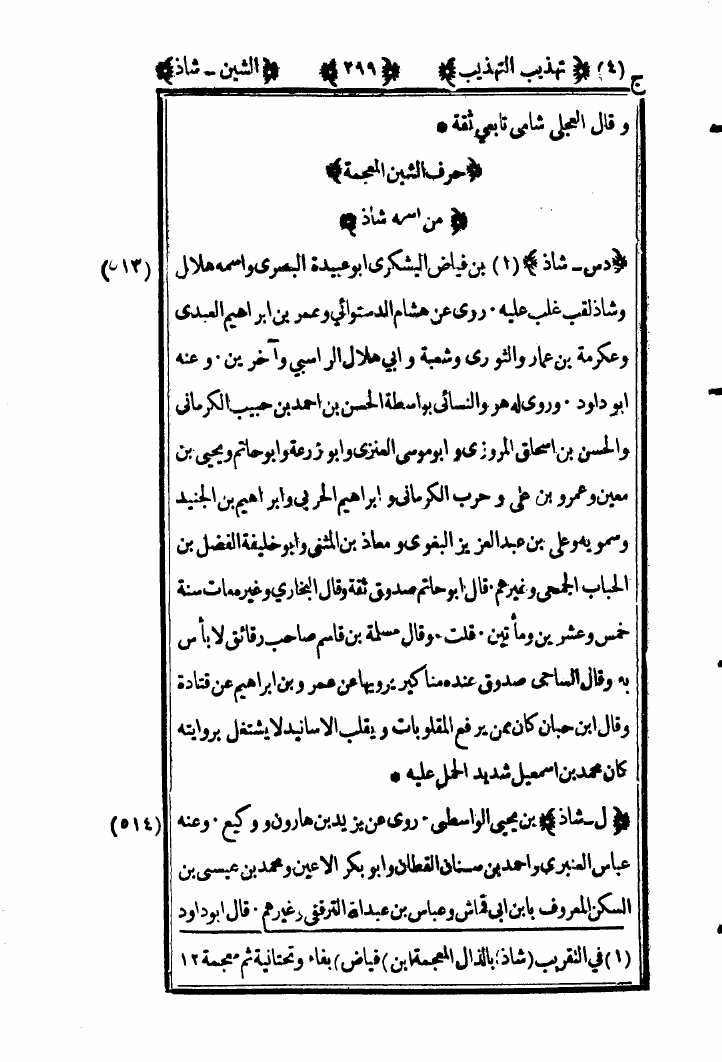 ج (٤) ﴿ تهذيب التهذيب ﴾ ﴿ ٢٩٩ ﴾ ﴿ الشين ــ شاذ ﴾
و قال العجلى شامى تابعي ثقة *
﴿ حرف الشين المعجمة ﴾
﴿ من اسمه شاذ ﴾
﴿ دس ــ شاذ ﴾ (١) بن فياض اليشكرى ابو عبيدة البصرى و اسمه هلال (٥١٣)
وشاذ لقب غلب عليه · روى عن هشام الدستوائي وعمر بن ابراهيم العبدى
وعكرمة بن عمار والثورى وشعبة و ابي هلال الراسبي وآخرين · وعنه
ابو داود · وروى له هو والنسائى بواسطة الحسن بن احمد بن حبيب الكرمانى
والحسن بن اسحاق المروزى و ابو موسى العنزى وابو زرعة وابو حاتم ويحيى بن
معين وعمرو بن على و حرب الكرمانى و ابراهيم الحربي وابراهيم بن الجنيد
وسمويه وعلى بن عبد العزيز البغوى و معاذ بن المثنى وابو خليفة الفضل بن
الحباب الجمحى وغيرهم · قال ابو حاتم صدوق ثقة وقال البخاري وغيره مات سنة
خمس وعشرين ومأتين · قلت · وقال مسلمة بن قاسم صاحب رقائق لا بأس
به وقال الساجى صدوق عنده مناكير يرويها عن عمرو بن ابراهيم عن قتادة
وقال ابن حبان كان ممن يرفع المقلوبات و يقلب الاسانيد لا يشتغل بروايته
كان محمد بن اسمعيل شديد الحمل عليه *
﴿ ل ــ شاذ ﴾ بن يحيى الواسطى · روى عن يزيد بن هارون و وكيع · وعنه (٥١٤)
عباس العنبري و احمد بن سنان القطان وابو بكر الاعين ومحمد بن عيسى بن
السكن المعروف بابن ابى قماش وعباس بن عبد الله الترقفى وغيرهم · قال ابو داود
(١) في التقريب (شاذ) بالذال المعجمة (ابن) فياض) بفاء وتحتانية ثم معجمة ١٢